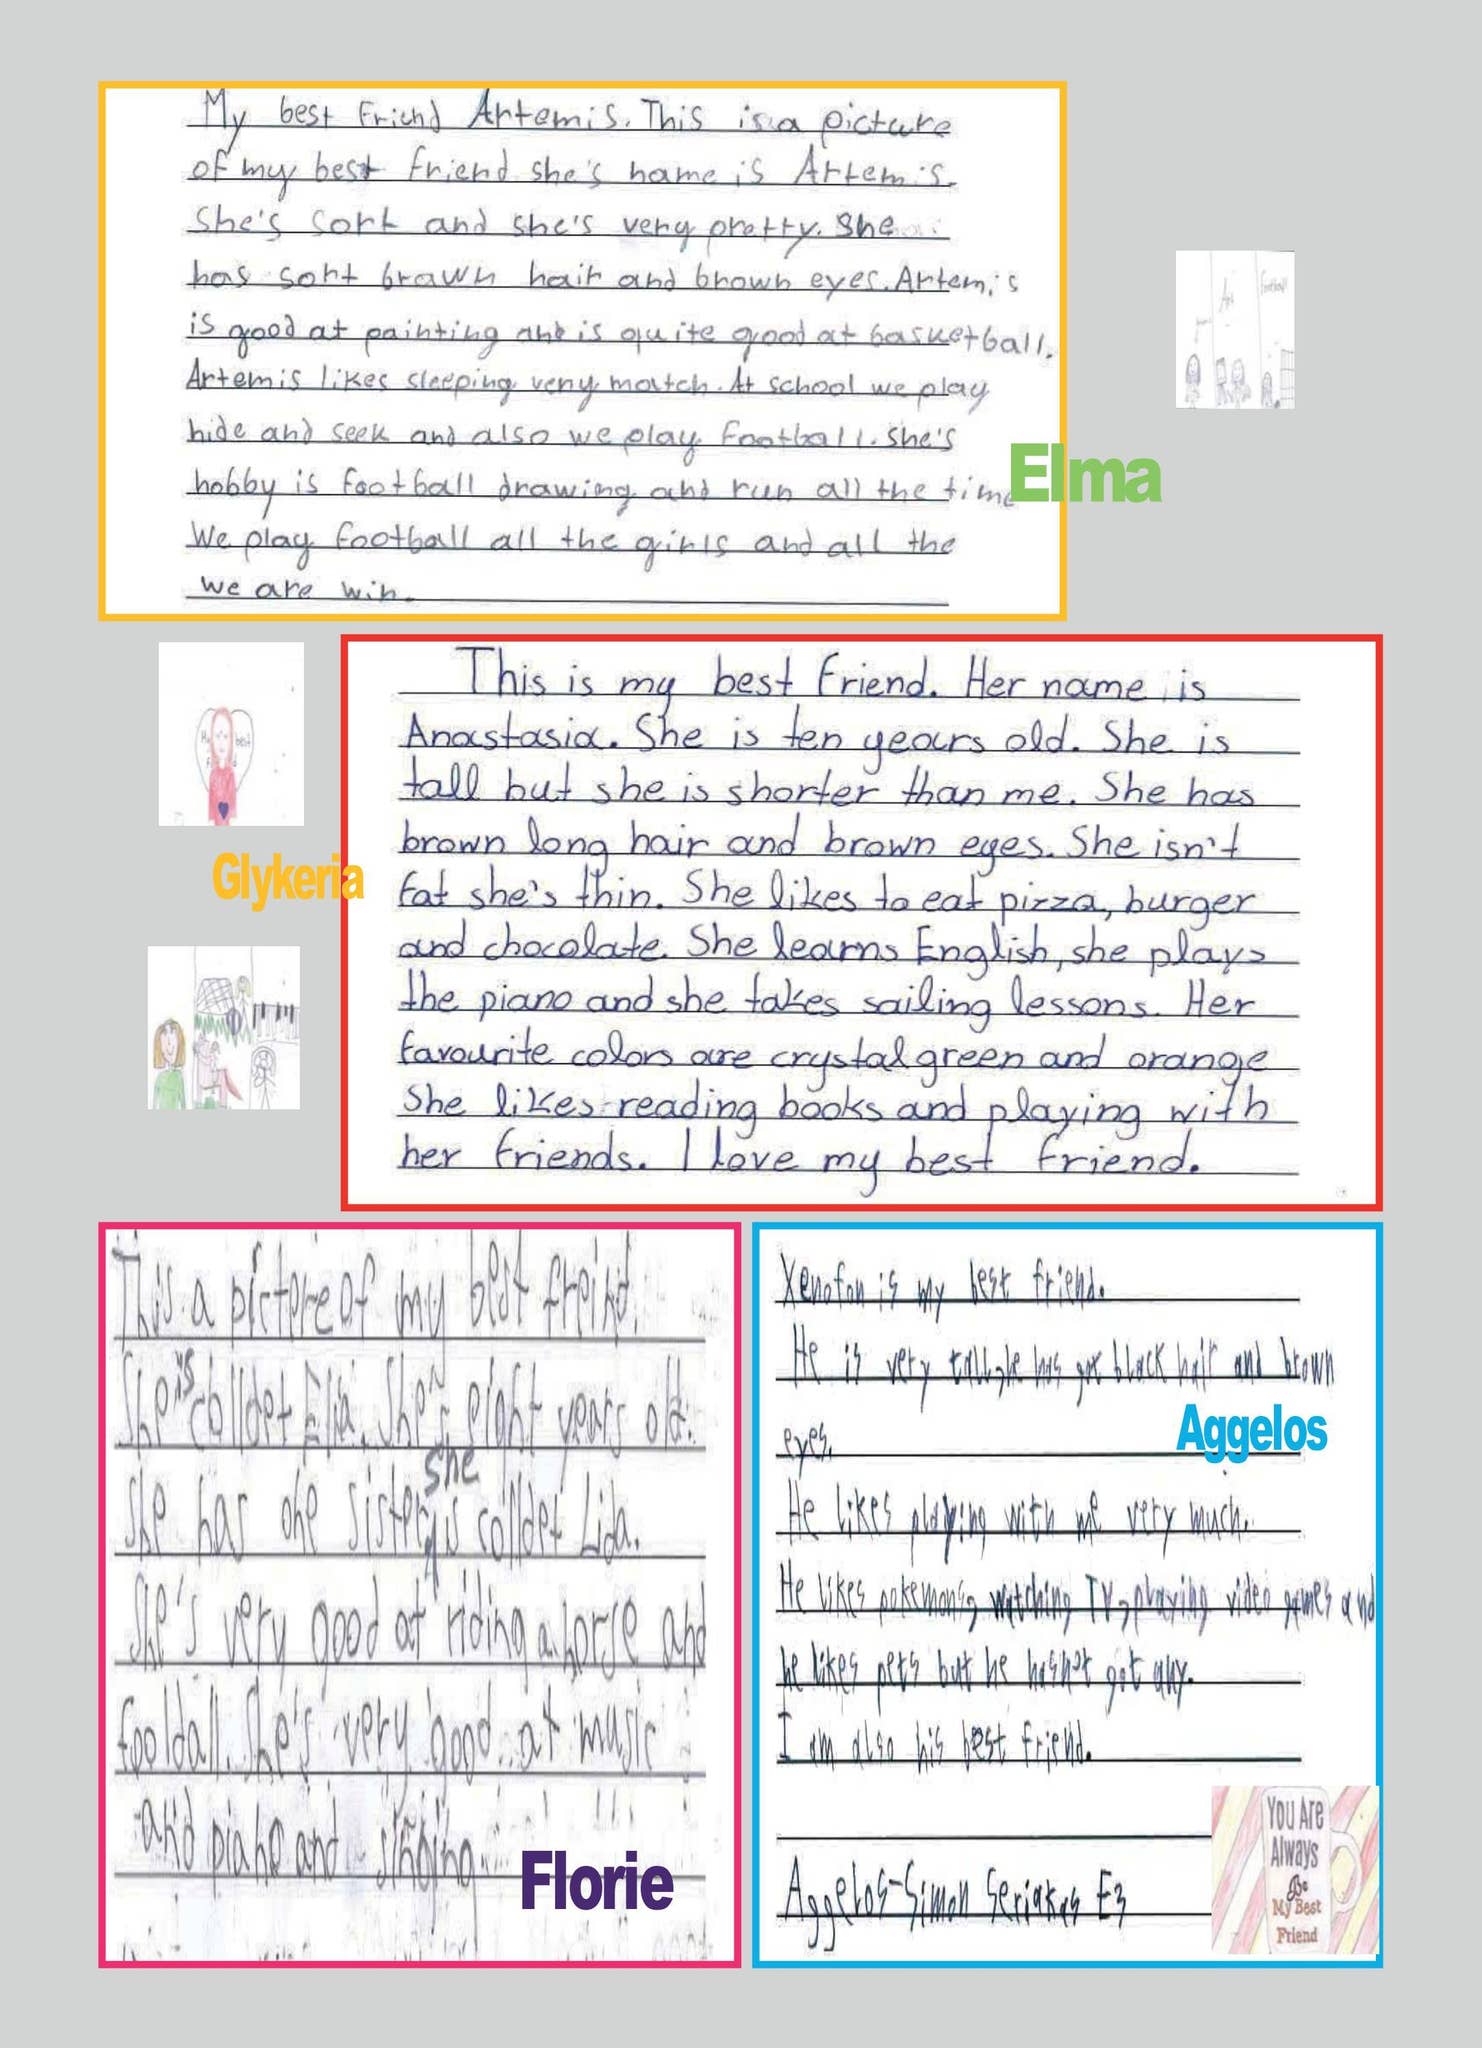 My best Friend Artemis. This is a picture
of my best friend she's name is Artemis.
She's sort and she's very pretty. She
has sort brawn hair and brown eyes. Artemis
is good at painting and is quite good at basketball.
Artemis likes sleeping very match. At school we play
hide and seek and also we play football. She's
hobby is football drawing and run all the time
We play football all the girls and all the
we are win.
Elma
Art
football
This is my best friend. Her name is
Anastasia. She is ten years old. She is
tall but she is shorter than me. She has
brown long hair and brown eyes. She isn't
fat she's thin. She likes to eat pizza, burger
and chocolate. She learns English, she plays
the piano and she takes sailing lessons. Her
favourite colors are crystal green and orange
She likes reading books and playing with
her friends. I love my best friend.
best
Glykeria
This a pictere of my best freind.
She is colldet Elia. She's eight years old.
She has one sister she is colldet Lida.
She's very good at riding a horse and
fooldall. She's very good at music
and piano and singing.
Florie
Xenofon is my best friend.
He is very tall, he has got black hair and brown
eyes.
He likes playing with me very much.
He likes pokemons, watching TV, playing video games and
he likes pets but he hasnot got any.
I am also his best friend.
Aggelos-Simon Seriakas E3
Aggelos
You Are
Always
Be
My Best
Friend